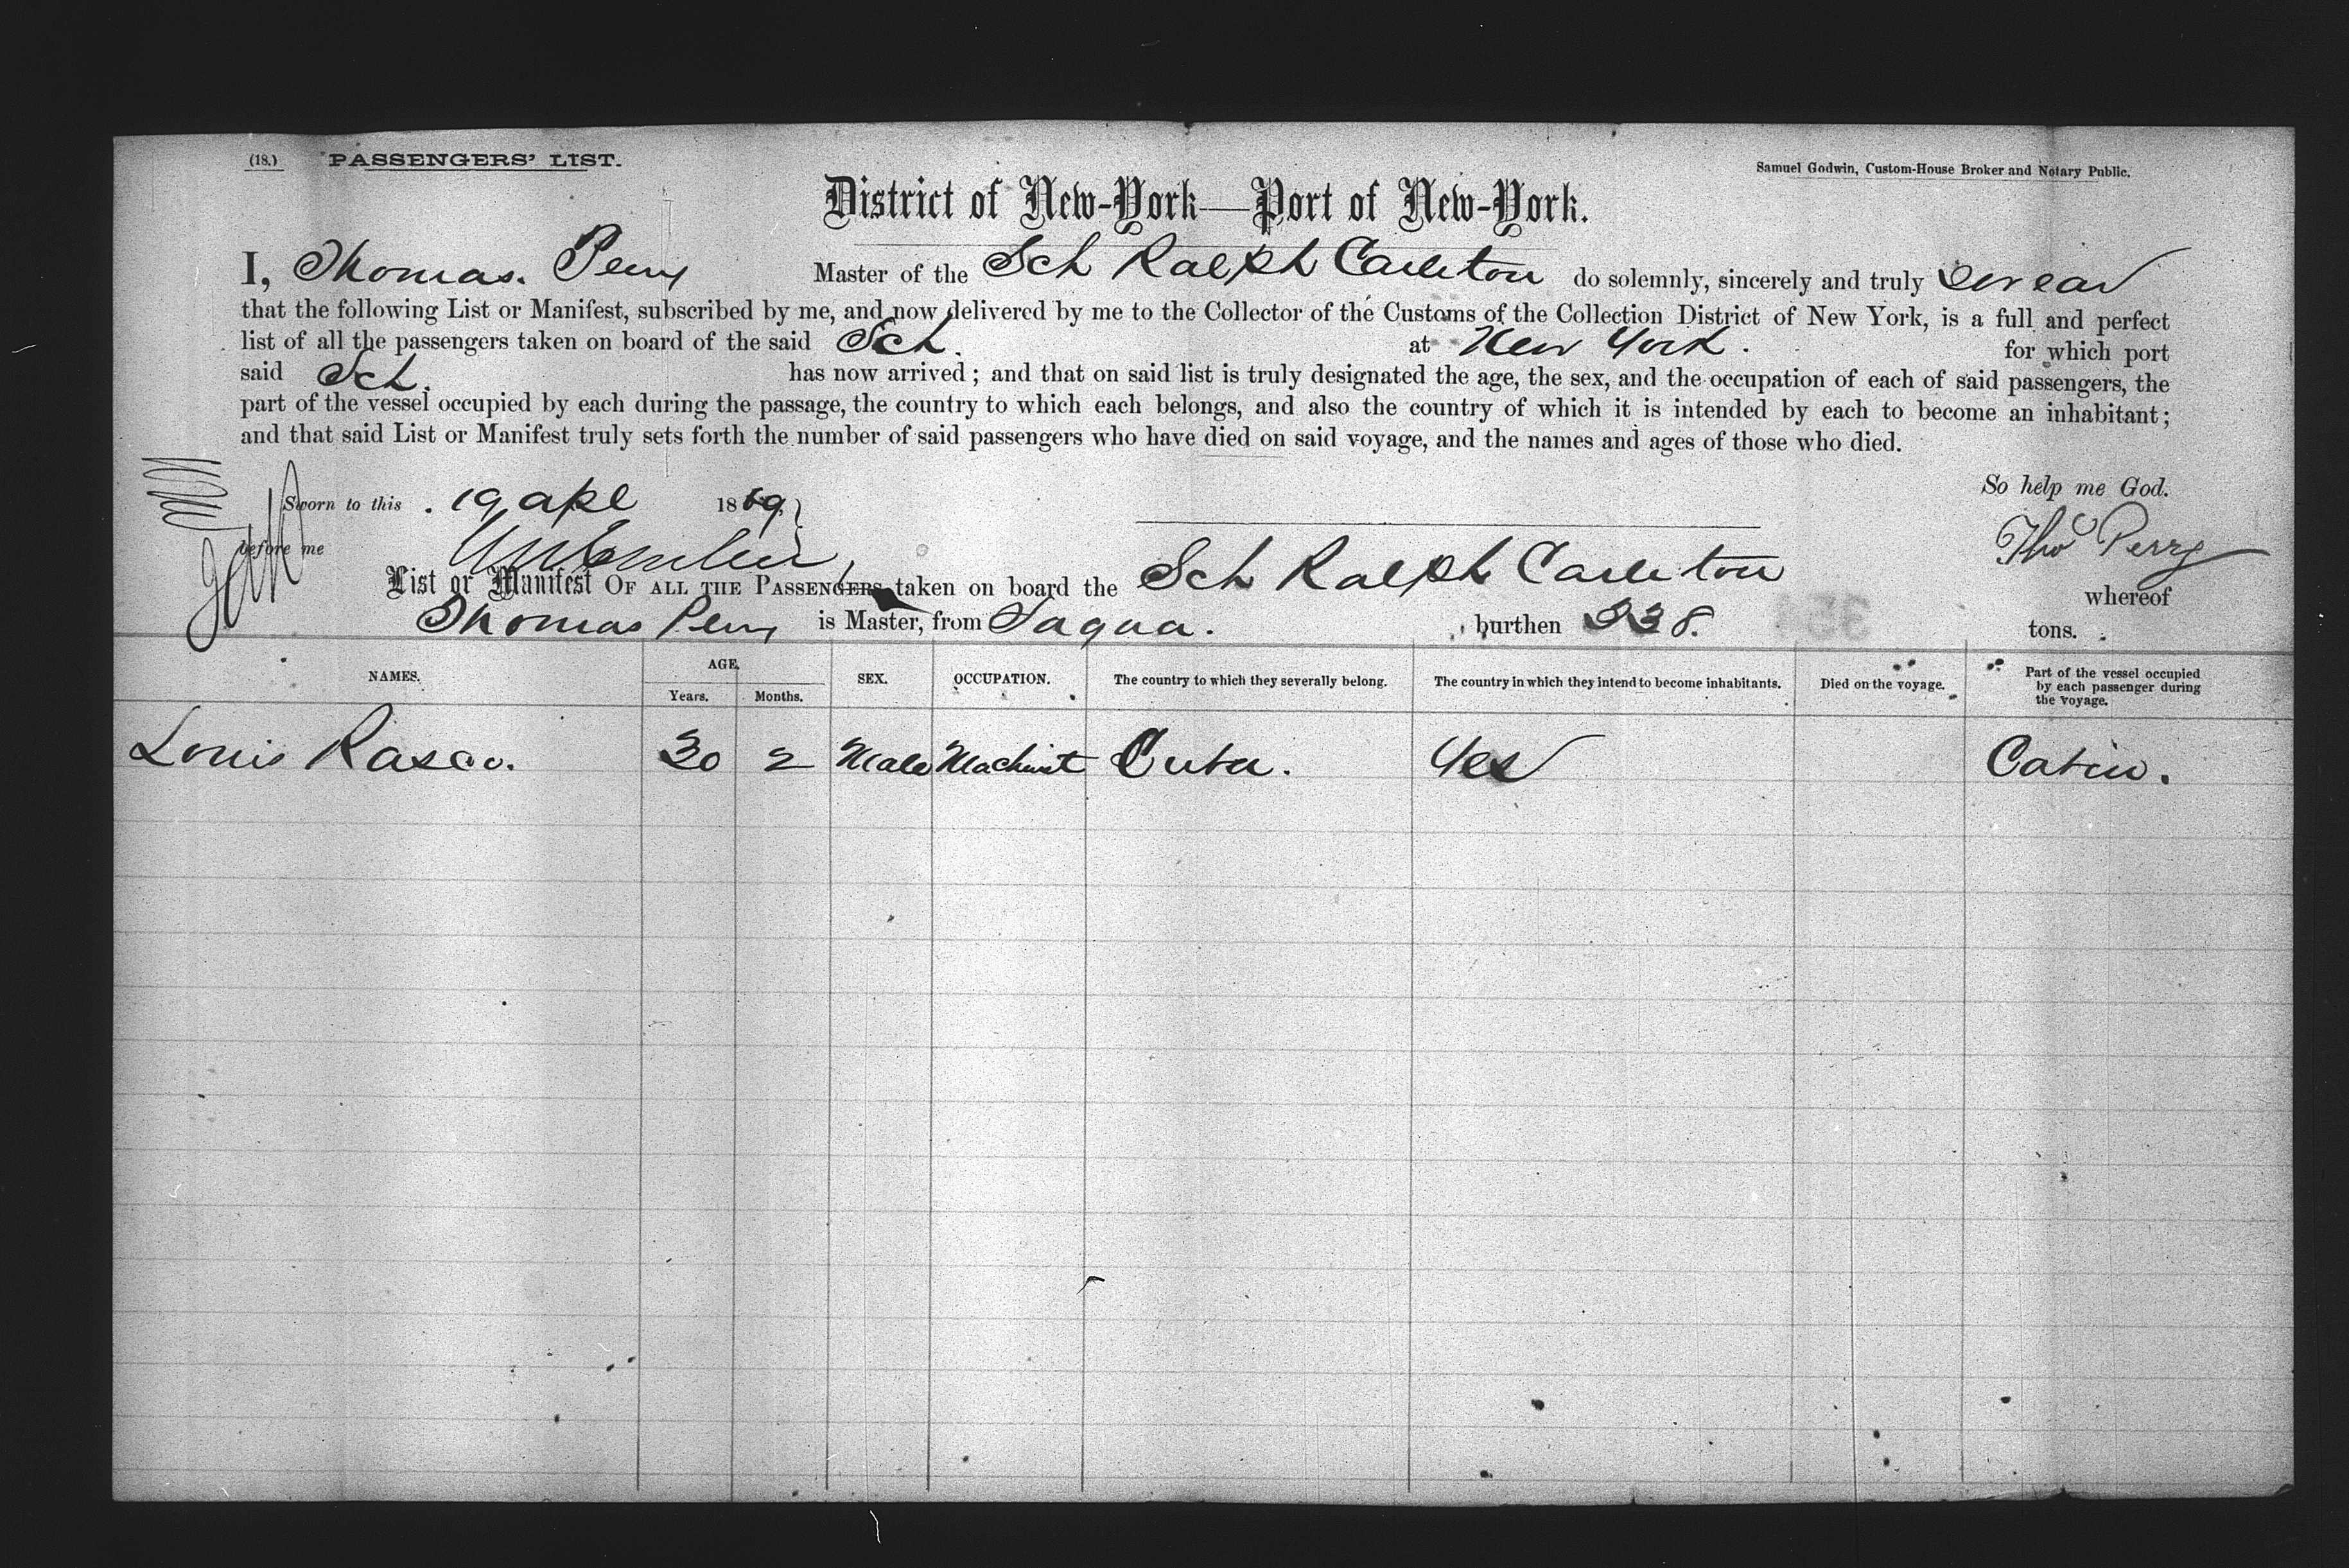 (18.) PASSENGERS' LIST.
Samuel Godwin, Custom-House Broker and Notary Public.
District of New-York—Port of New-York.
I, Thomas. Perry Master of the Sch Ralph Carleton do solemnly, sincerely and truly swear
that the following List or Manifest, subscribed by me, and now delivered by me to the Collector of the Customs of the Collection District of New York, is a full and perfect
list of all the passengers taken on board of the said Sch. at New York. for which port
said Sch. has now arrived; and that on said list is truly designated the age, the sex, and the occupation of each of said passengers, the
part of the vessel occupied by each during the passage, the country to which each belongs, and also the country of which it is intended by each to become an inhabitant;
and that said List or Manifest truly sets forth the number of said passengers who have died on said voyage, and the names and ages of those who died.
So help me God.
Sworn to this 19 apl 1869,
Tho Perry
before me
List or Manifest OF ALL THE PASSENGERS taken on board the Sch Ralph Carleton whereof
Thomas Perry is Master, from Sagua. burthen 238. tons.
NAMES. AGE. SEX. OCCUPATION. The country to which they severally belong. The country in which they intend to become inhabitants. Died on the voyage. Part of the vessel occupied by each passenger during the voyage.
Years. Months.
Louis Rasco. 30 2 Male Machinist Cuba. Yes Cabin.